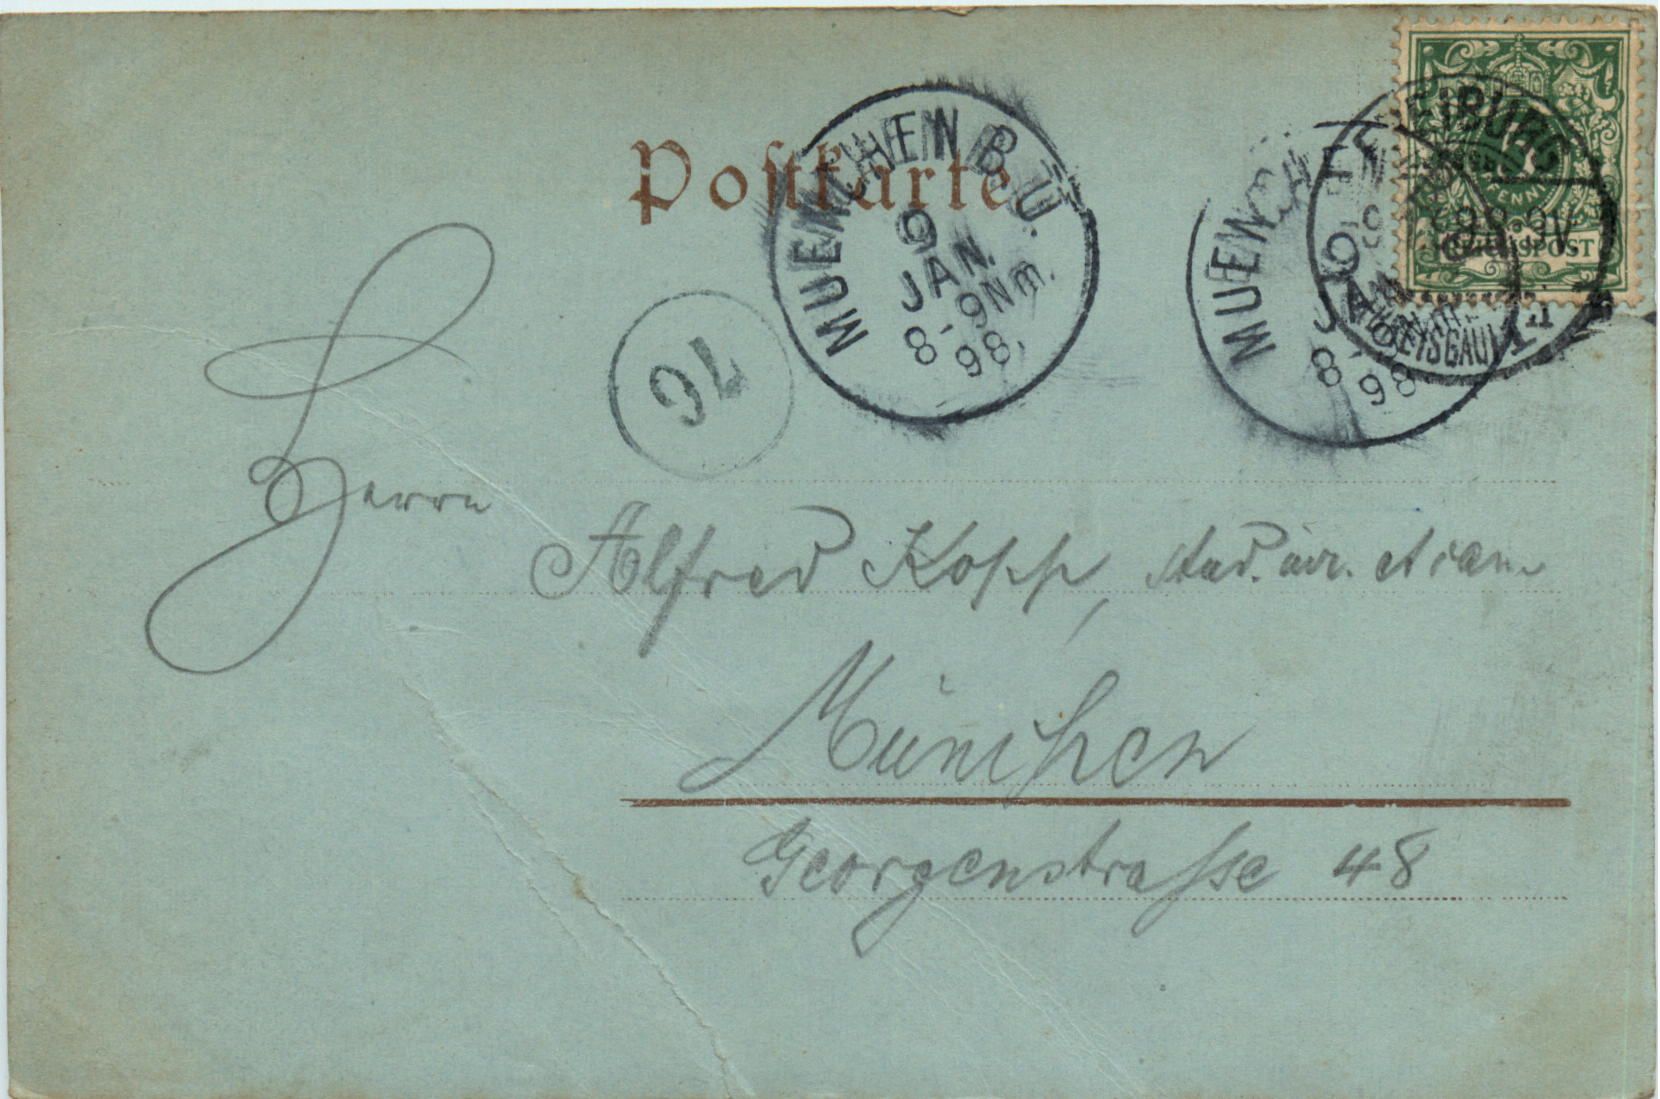 Postkarte
MUENCHEN B.Ü.
9
JAN.
8-9Nm.
98.
MUENCHEN
9
JAN
8-
98
FREIBURG
98.9-10V
BREISGAU
5
PFENNIG
REICHSPOST
76
Herrn
Alfred Kopp, stud.
München
Georgenstrasse 48